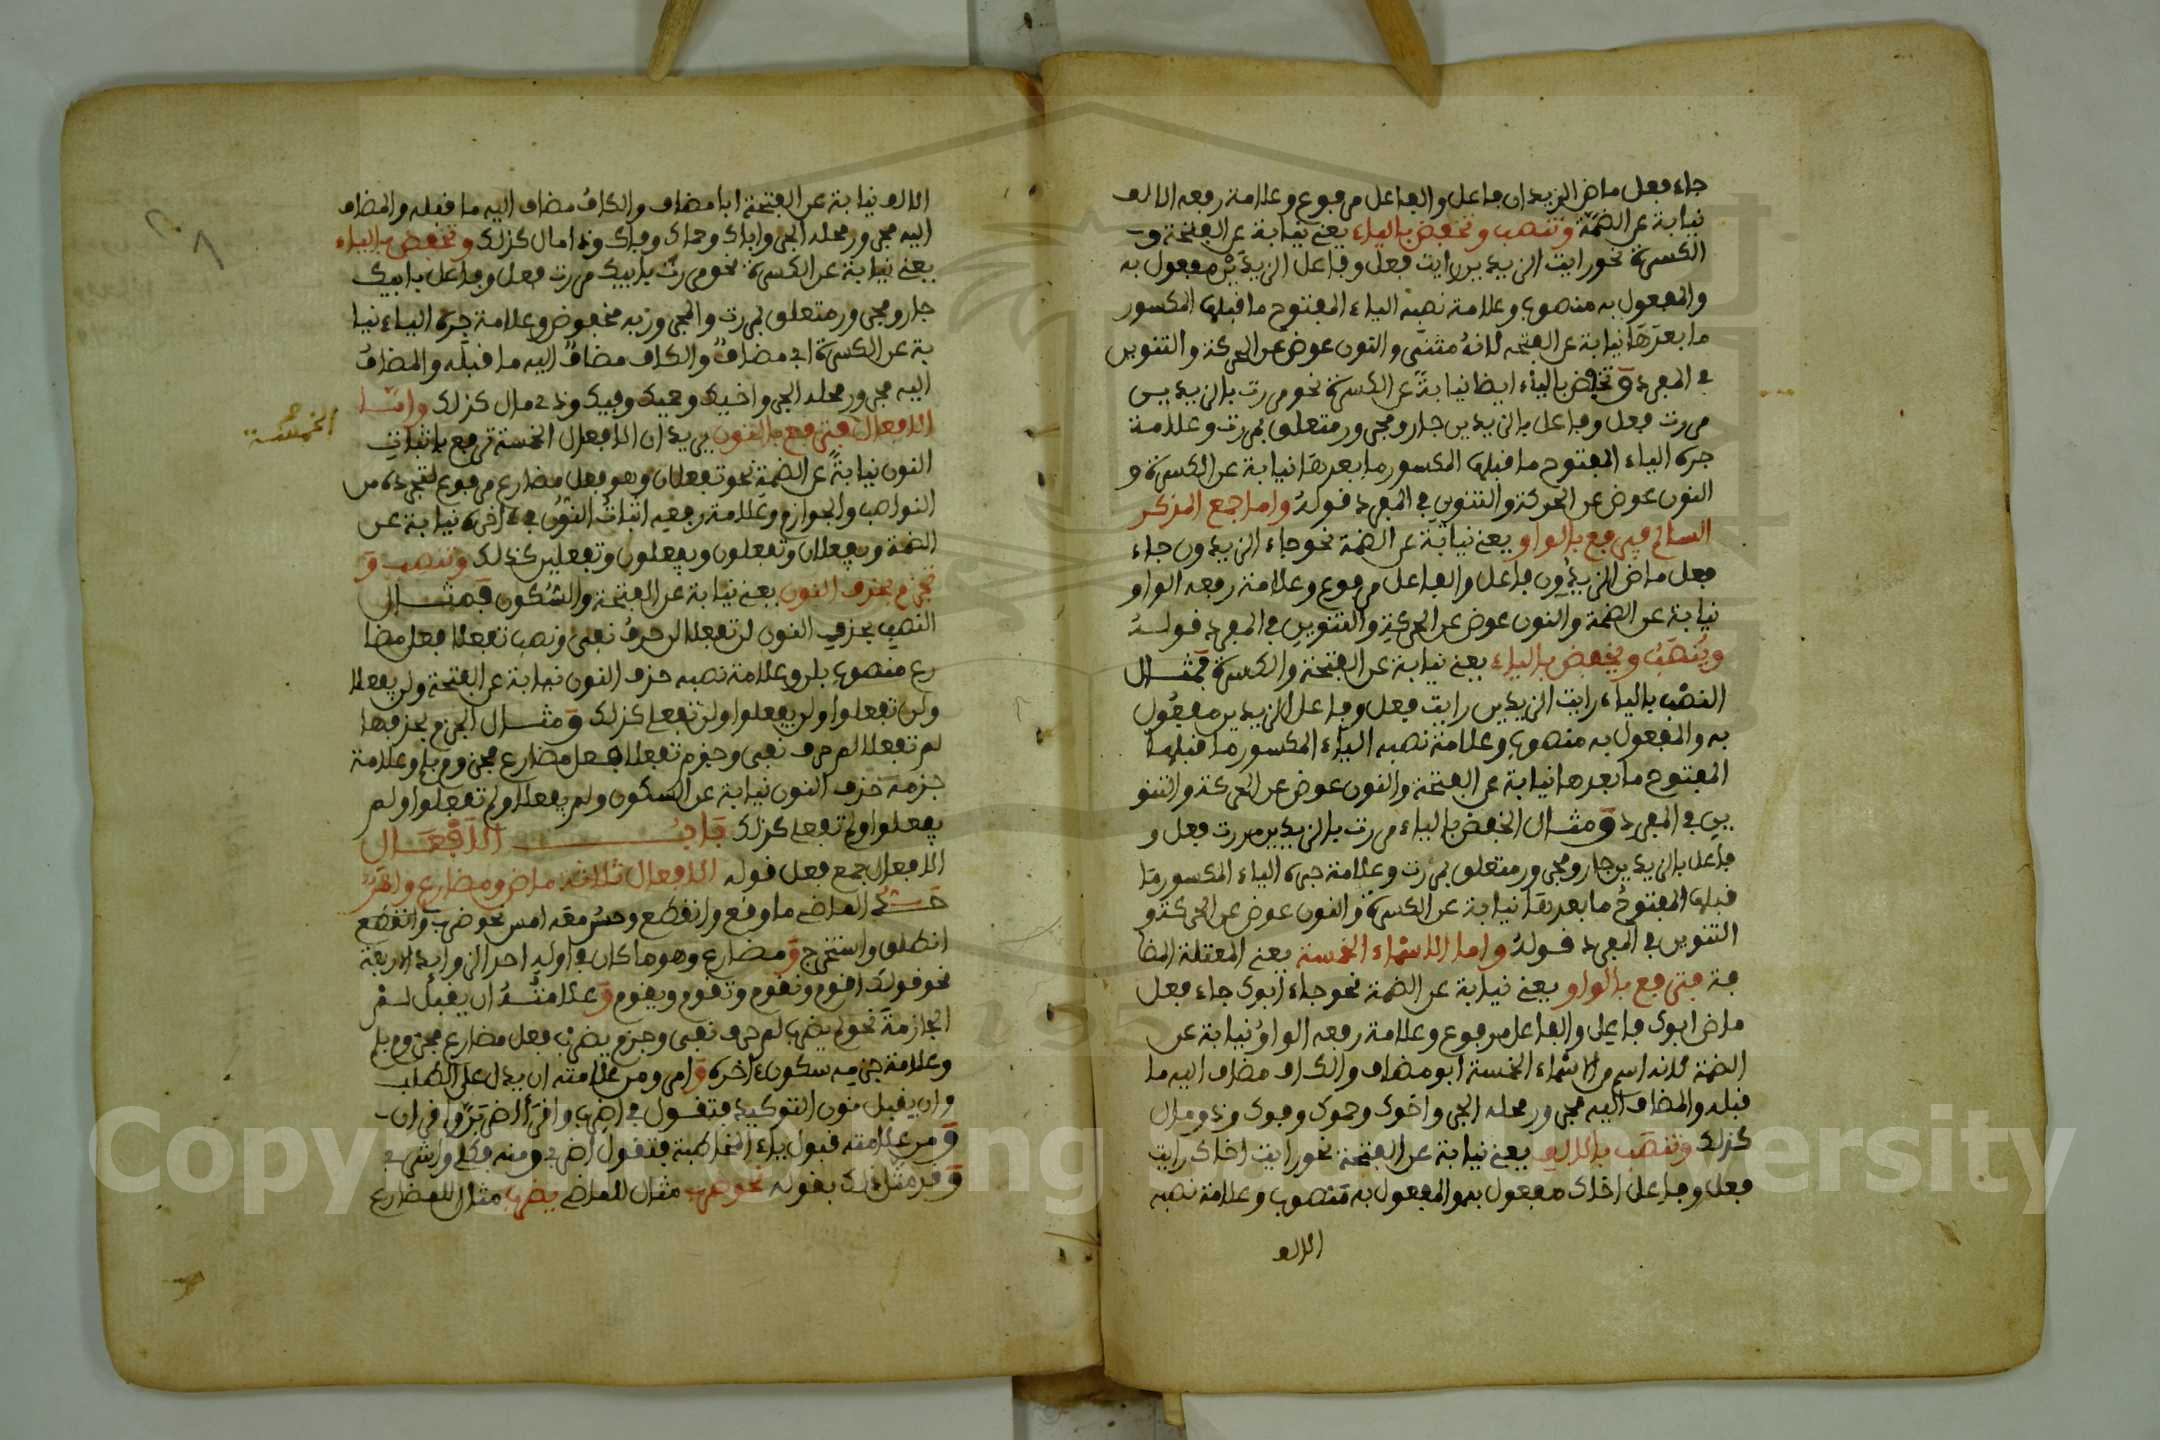 جاء فعل ماض الزيدان فاعل والفاعل مرفوع وعلامة رفعه الالف
نيابة عن الضمة وتنصب وتخفض بالياء يعني نيابة عن الفتحة و
الكسرة نحو رايت الزيدين رايت فعل وفاعل الزيدين مفعول به
والمفعول به منصوب وعلامة نصبه الياء المفتوح ما قبلها المكسور
ما بعدها نيابة عن الفتحة لانه مثنى والنون عوض عن الحركة والتنوين
في المفرد وتخفض بالياء ايضا نيابة عن الكسرة نحو مررت بالزيدين
مررت فعل وفاعل بالزيدين جار ومجرور متعلق بمررت وعلامة
جره الياء المفتوح ما قبلها المكسور ما بعدها نيابة عن الكسرة و
النون عوض عن الحركة والتنوين في المفرد قوله واما جمع المذكر
السالم فيرفع بالواو يعني نيابة عن الضمة نحو جاء الزيدون جاء
فعل ماض الزيدون فاعل والفاعل مرفوع وعلامة رفعه الواو
نيابة عن الضمة والنون عوض عن الحركة والتنوين في المفرد قوله
وينصب ويخفض بالياء يعني نيابة عن الفتحة والكسرة فمثال
النصب بالياء رايت الزيدين رايت فعل وفاعل الزيدين مفعول
به والمفعول به منصوب وعلامة نصبه الياء المكسور ما قبلها
المفتوح ما بعدها نيابة عن الفتحة والنون عوض عن الحركة والتنو
ين في المفرد ومثال الخفض بالياء مررت بالزيدين مررت فعل و
فاعل بالزيدين جار ومجرور متعلق بمررت وعلامة جره الياء المكسور ما
قبلها المفتوح ما بعدها نيابة عن الكسرة والنون عوض عن الحركة و
التنوين في المفرد قوله واما الاسماء الخمسة يعني المعتلة المضا
فة فترفع بالواو يعني نيابة عن الضمة نحو جاء ابوك جاء فعل
ماض ابوك فاعل والفاعل مرفوع وعلامة رفعه الواو نيابة عن
الضمة لانه اسم من الاسماء الخمسة ابو مضاف والكاف مضاف اليه ما
قبله والمضاف اليه مجرور محله الجر واخوك وحموك وفوك وذو مال
كذلك وتنصب بالالف يعني نيابة عن الفتحة نحو رايت اخاك رايت
فعل وفاعل اخاك مفعول به والمفعول به منصوب وعلامة نصبه
الالف
الالف نيابة عن الفتحة ابا مضاف والكاف مضاف اليه ما قبله والمضاف
اليه مجرور محله الجر واباك وحماك وفاك وذا مال كذلك وتخفض بالياء
يعني نيابة عن الكسرة نحو مررت بابيك مررت فعل وفاعل بابيك
جار ومجرور متعلق بمررت والمجرور به مخفوض وعلامة جره الياء نيا
بة عن الكسرة ابي مضاف والكاف مضاف اليه ما قبله والمضاف
اليه مجرور محله الجر واخيك وحميك وفيك وذي مال كذلك واما
الافعال فترفع بالنون يريد ان الافعال الخمسة ترفع باثبات
الخمسة
النون نيابة عن الضمة نحو تفعلان وهو فعل مضارع مرفوع لتجرده من
النواصب والجوازم وعلامة رفعه اثبات النون في اخره نيابة عن
الضمة ويفعلان وتفعلون ويفعلون وتفعلين كذلك وتنصب و
تجزم بحذف النون يعني نيابة عن الفتحة والسكون فمثال
النصب بحذف النون لن تفعلا لن حرف نفي ونصب تفعلا فعل مضا
رع منصوب بلن وعلامة نصبه حذف النون نيابة عن الفتحة ولن يفعلا
ولن تفعلوا ولن يفعلوا ولن تفعلي كذلك ومثال الجزم بحذفها
لم تفعلا لم حرف نفي وجزم تفعلا فعل مضارع مجزوم بلم وعلامة
جزمه حذف النون نيابة عن السكون ولم يفعلا ولم تفعلوا ولم
يفعلوا ولم تفعلي كذلك باب الافعال
الافعال جمع فعل قوله الافعال ثلاثة ماض ومضارع وامر
الماضي ما وقع وانقطع وحسن معه امس نحو ضرب وانقطع
انطلق واستخرج ومضارع وهو ما كان في اوله احد الزوايد الاربعة
نحو قولك اقوم ونقوم وتقوم ويقوم وعلامته ان يقبل لم
الجازمة نحو لم يضرب لم حرف نفي وجزم يضرب فعل مضارع مجزوم بلم
وعلامة جزمه سكون اخره وامر ومن علامته ان يدل على الطلب
وان يقبل نون التوكيد فتقول في اضرب
ومن علامته قبول ياء المخاطبة فتقول اضربي ومنه فكلي واشربي
وقد مثل ذلك بقوله نحو ضرب مثال للماضي يضرب مثال للمضارع
Copy King University